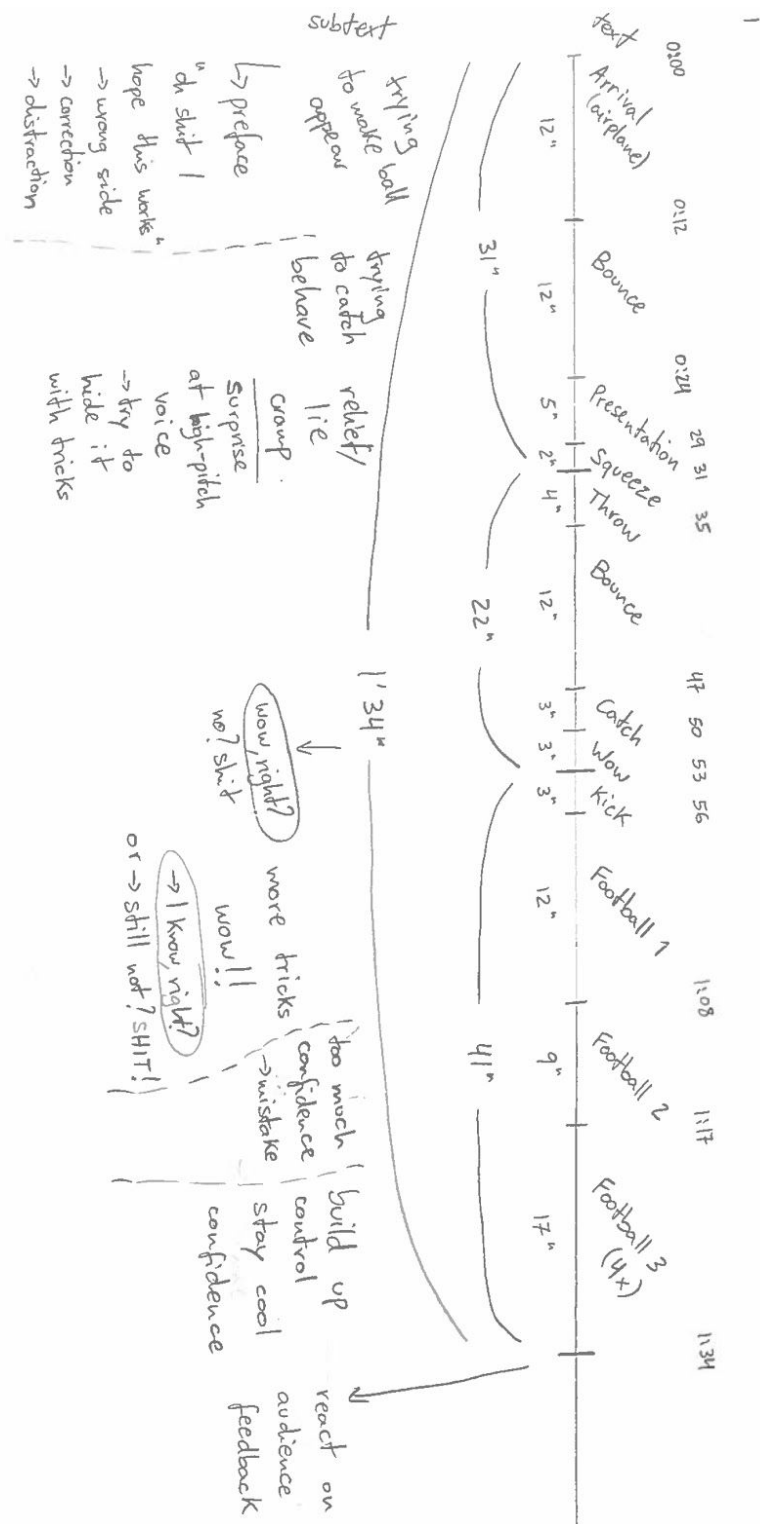 1
0:00
0:12
0:24
29
31
35
47
50
53
56
1:08
1:17
1:34
text
Arrival
(airplane)
Bounce
Presentation
Squeeze
Throw
Bounce
Catch
Wow
Kick
Football 1
Football 2
Football 3
(4x)
12"
12"
5"
2"
4"
12"
3"
3"
3"
12"
9"
17"
31"
22"
41"
1'34"
subtext
trying
to make ball
appear
↳ preface
"oh shit I
hope this works"
→ wrong side
→ correction
→ distraction
trying
to catch
behave
relief/
lie
cramp
surprise
at high-pitch
voice
→ try to
hide it
with tricks
wow, right?
no? shit
more tricks
wow!!
→ I know, right?
or → still not? SHIT!
too much
confidence
→ mistake
build up
control
stay cool
confidence
react on
audience
feedback